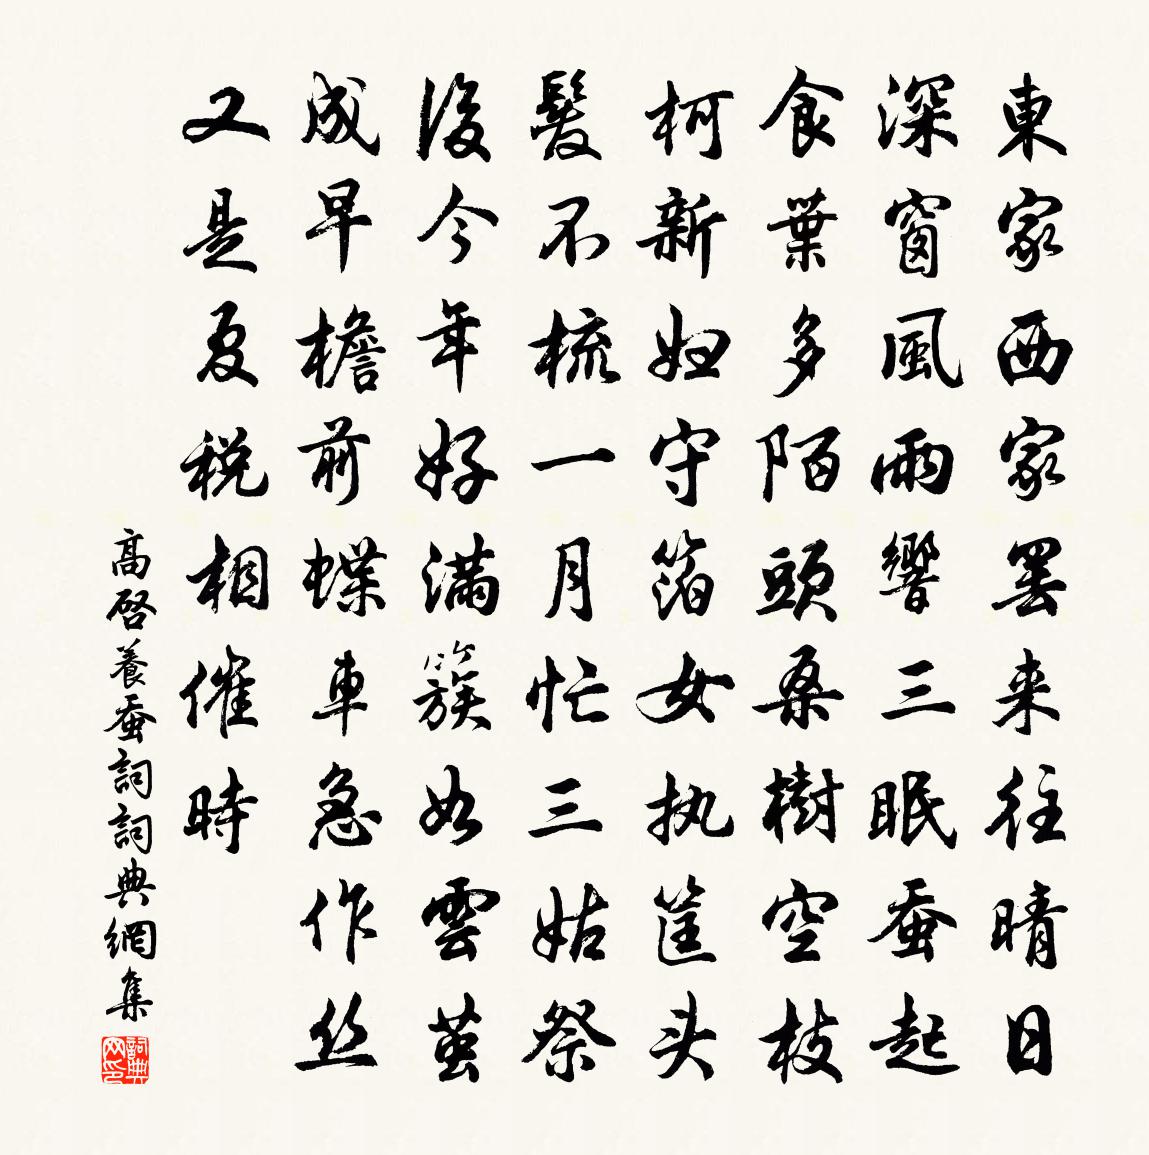 東家西家罢来往晴日
深窗風雨響三眠蚕起
食葉多陌頭桑樹空枝
柯新妇守箔女执筐头
髮不梳一月忙三姑祭
後今年好滿簇如雲茧
成早檐前蝶車急作丝
又是夏税相催時
高啓養蚕詞詞典網集
詞典网印